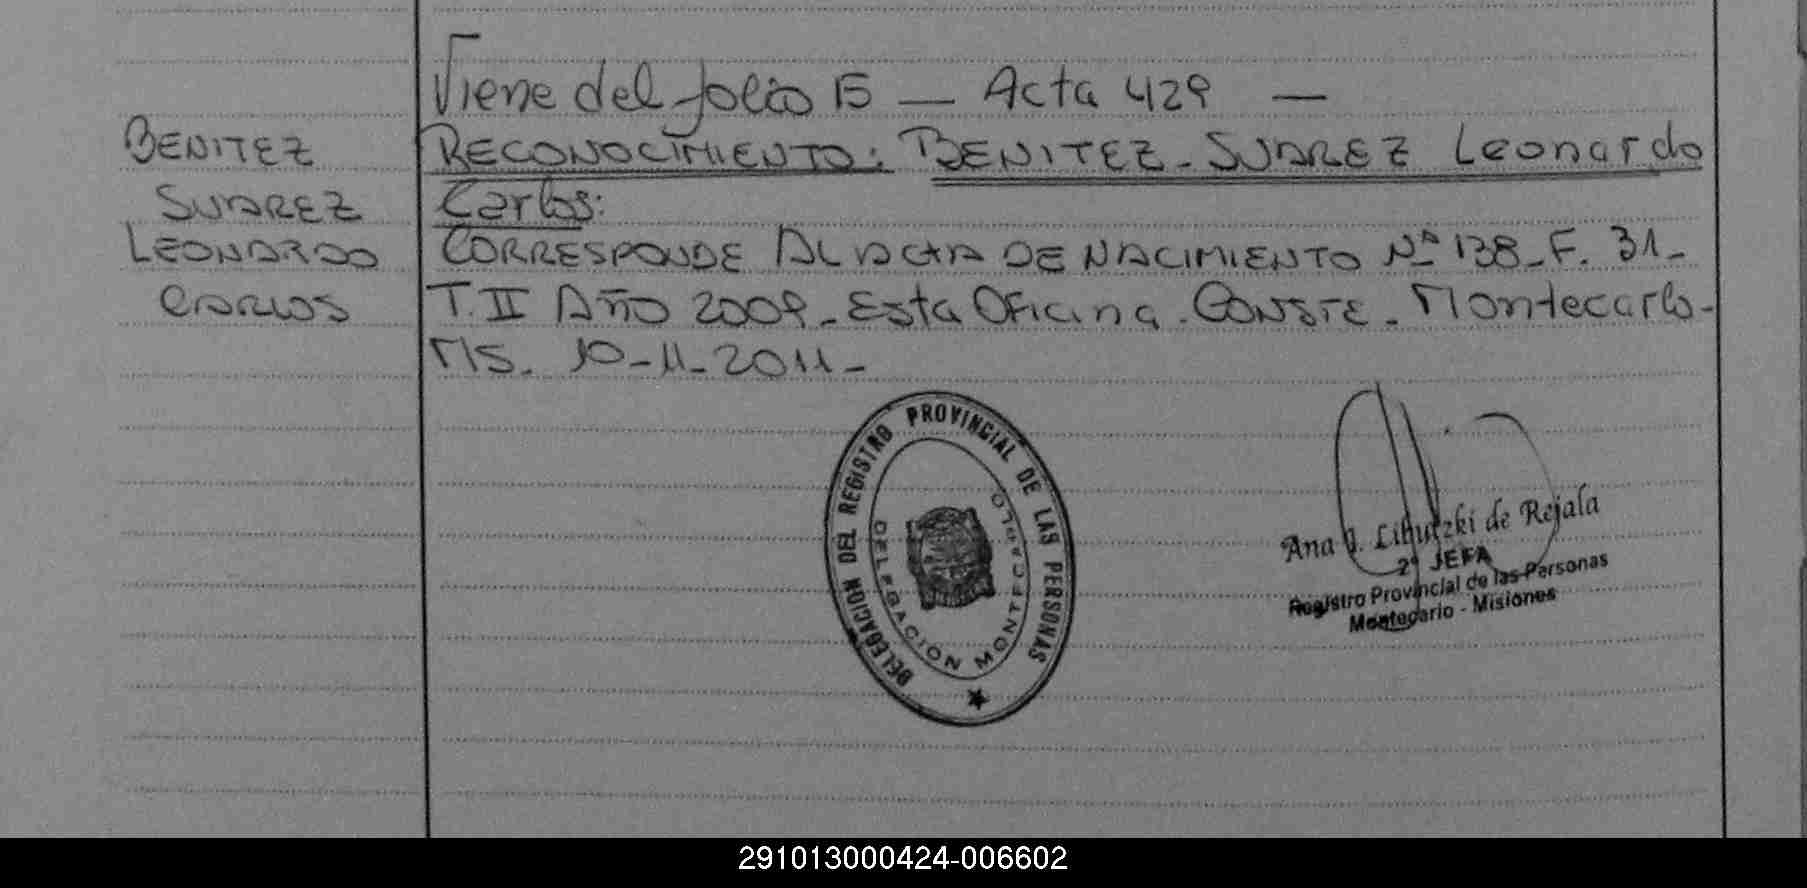 Viene del folio 15 — Acta 429 —
BENITEZ
SUAREZ
LEONARDO
CARLOS
RECONOCIMIENTO: BENITEZ - SUAREZ Leonardo
Carlos:
CORRESPONDE AL ACTA DE NACIMIENTO Nº 138 - F. 31 -
T. II AÑO 2009 - Esta Oficina. CONSTE - Montecarlo -
MS. 10 - 11 - 2011 -
DELEGACION DEL REGISTRO PROVINCIAL DE LAS PERSONAS
DELEGACION MONTECARLO
Ana J. Lihutzki de Rejala
2º JEFA
Registro Provincial de las Personas
Montecarlo - Misiones
291013000424-006602